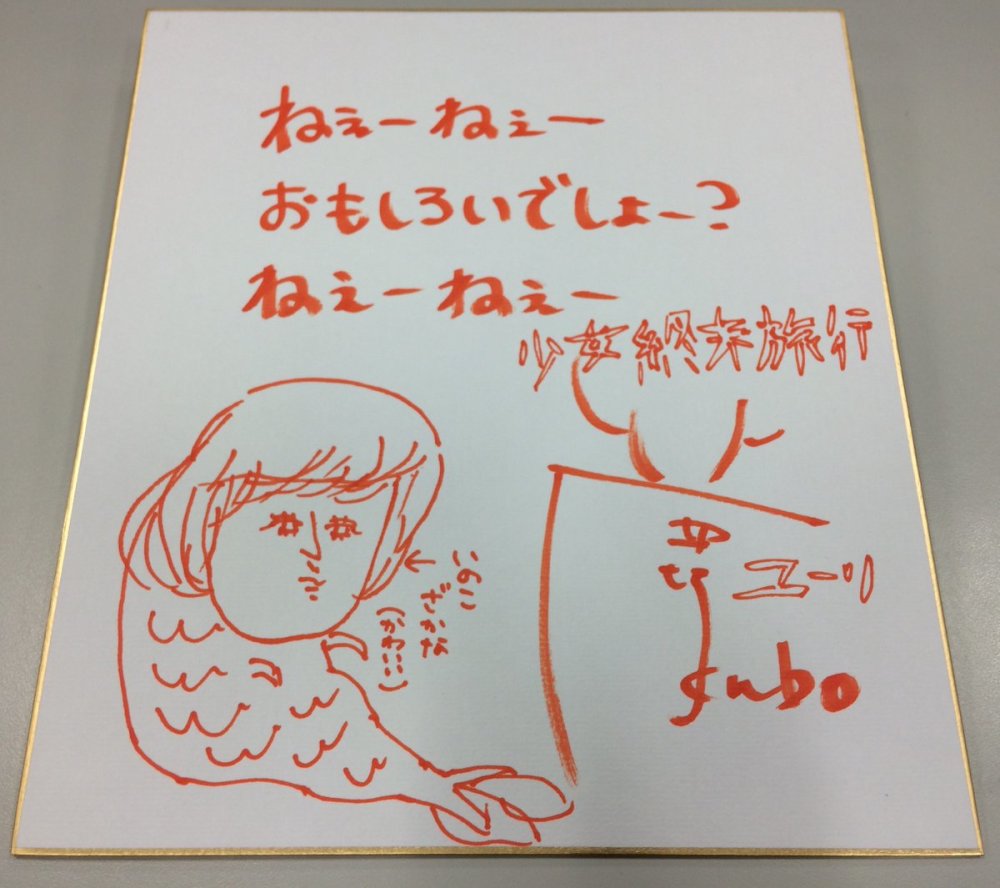 ねぇーねぇー
おもしろいでしょー?
ねぇーねぇー
少女終末旅行
ユーリ
いのこ
ざかな
(かわいい)